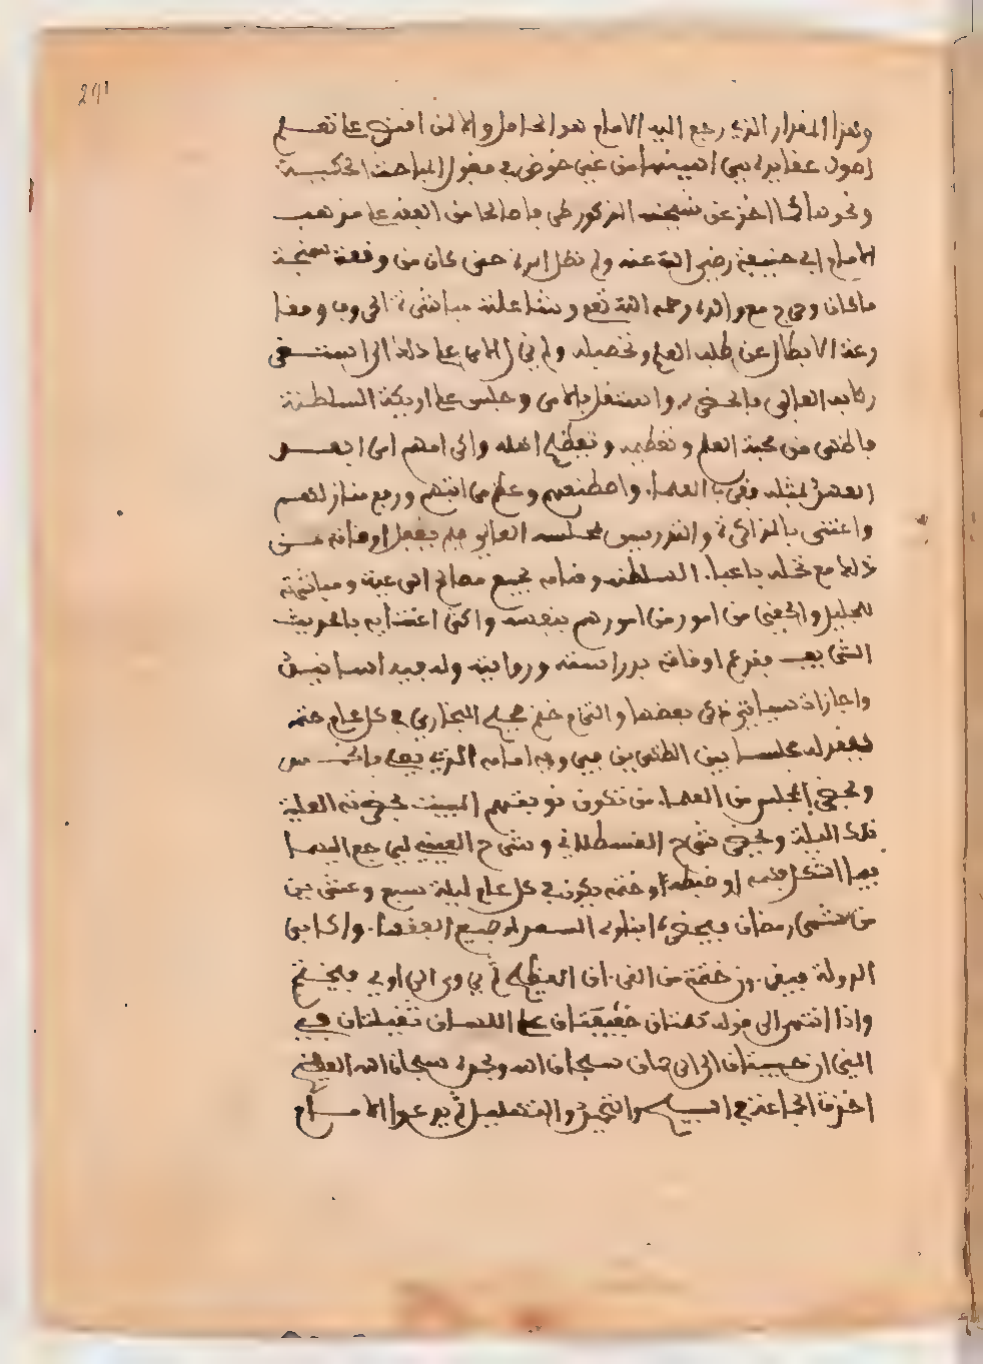 291
وهذا المقدار الذي رجع اليه الامام هو الحامل والا لمن اقتصر على تعلم
اصول عقايده من غير خوض في فضول المباحث
ونحوها كما اخذ عن شيخه المذكور طرفا صالحا من الفقه على مذهب
الامام ابي حنيفة رضي الله عنه ولم تطل المدة حتى كان من وقعة سمنجة
ما كان وخرج مع والده رحمه الله تعالى وشاغلته مباشرة الحروب ومقا
رعة الابطال عن طلب العلم وتحصيله ولم يزل الامر على ذلك الى ان استقر
ركابه العالي بالحضرة واستقل بالامر وجلس على اريكة السلطنة
فاظهر من محبة العلم وتعظيمه وتعظيم اهله واكرامهم امرا ابعد
العهد بمثله فقرب العلماء واصطنعهم وعلم مراتبهم ورفع منازلهم
واعتنى بالمذاكرة والتدريس بمجلسه العالي فلم يغفل اوقاته عن
ذلك مع تحمله باعباء السلطنة وقيامه بجميع مصالح الرعية ومباشرته
للجليل والحقير من امور من امورهم بنفسه واكثر اعتنايه بالحديث
الشريف يفرغ اوقاته بدراسته وروايته وله فيه اسانيد
واجازات سياتي ذكر بعضها والتزام ختم صحيح البخاري في كل عام ختمة
يعقد له مجلسا بين الظهرين يميز فيه امامه الذي يصلي بالخمس
ويحضر المجلس من العلماء من تكون نوبتهم المبيت بحضرته العلية
تلك الليلة ويحضر شرح القسطلاني وشرح العيني ليرجع اليهما
فيما اشكل فهمه او ضبطه وختمه يكون في كل عام ليلة سبع وعشرين
من شهر رمضان فيحضر ابناوه السعداء وجميع الفقهاء واكابر
الدولة فيقرءون ختمة من القرءان العظيم ثم يروى الراوي فيختم
واذا انتهى الى قوله كلمتان خفيفتان على اللسان ثقيلتان في
الميزان حبيبتان الى الرحمان سبحان الله وبحمده سبحان الله العظيم
اخذت الجماعة في التسبيح والتحميد والتهليل ثم يدعوا الامام